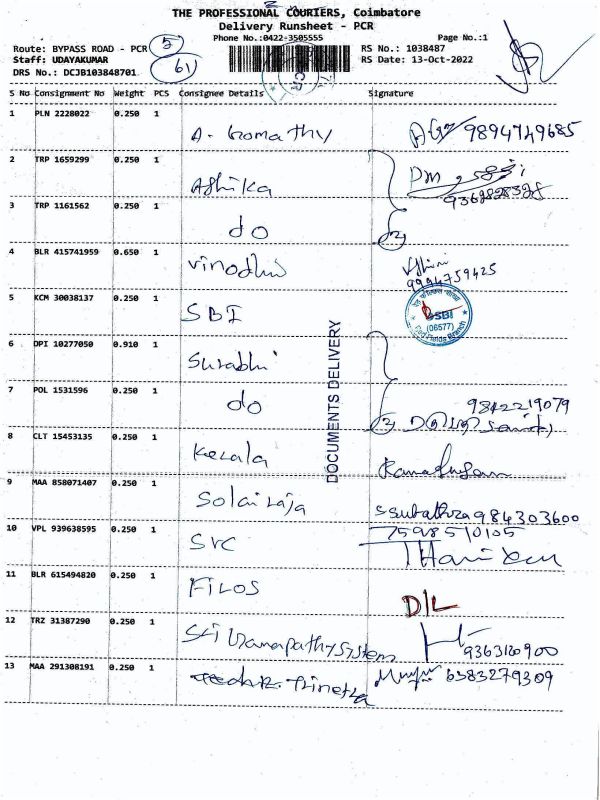 THE PROFESSIONAL COURIERS, Coimbatore
Delivery Runsheet - PCR
Phone No.:0422-3505555 Page No.:1
Route: BYPASS ROAD - PCR 5 RS No.: 1038487
Staff: UDAYAKUMAR 61 RS Date: 13-Oct-2022
DRS No.: DCJB103848701
S No Consignment No Weight PCS Consignee Details Signature
1 PLN 2228022 0.250 1 A. Gomathy 9894749685
2 TRP 1659299 0.250 1 Ashika
3 TRP 1161562 0.250 1 do 2
4 BLR 415741959 0.650 1 Vinodhini 9994759425
5 KCM 30038137 0.250 1 SBI
SSBI
(06577)
6 OPI 10277050 0.910 1 Surabhi
7 POL 1531596 0.250 1 do 9842219079
2
8 CLT 15453135 0.250 1 Kerala
DOCUMENTS DELIVERY
9 MAA 858071407 0.250 1 Solairaja 984303600
10 VPL 939638595 0.250 1 SVC 7598510105
11 BLR 615494820 0.250 1 FILOS D/L
12 TRZ 31387290 0.250 1 Sri Ganapathy System 9363120900
13 MAA 291308191 0.250 1 Trinetra 6383279309